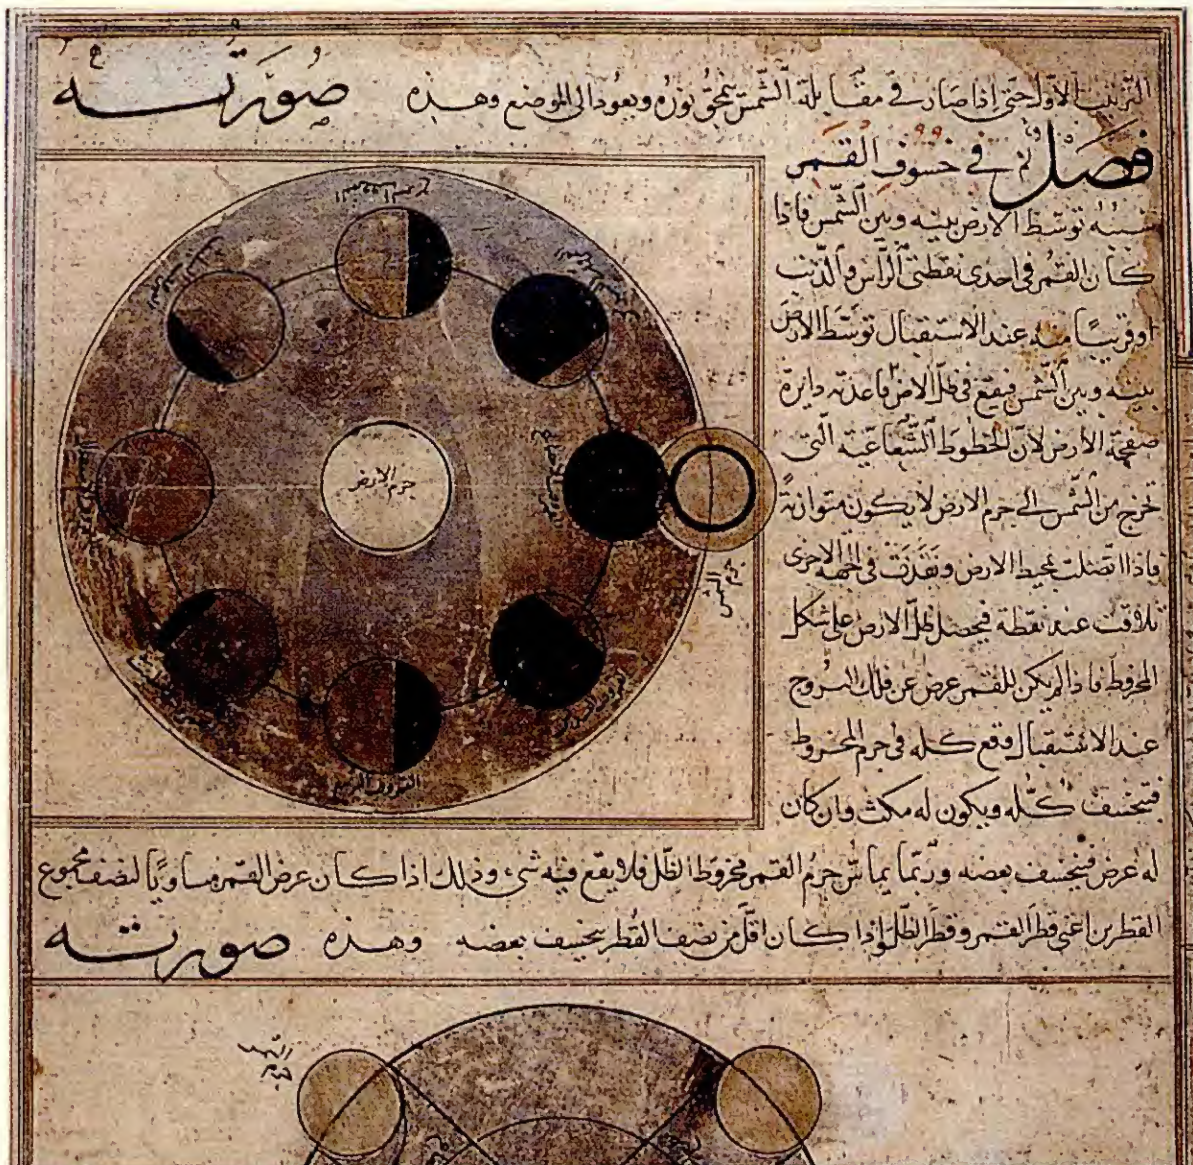 الترتيب الاول حتى اذا صار في مقابلة الشمس يمحق نوره ويعود الى الموضع وهذه صورته
فصل في خسوف القمر
سببه توسط الارض بينه وبين الشمس فاذا
كان القمر في احدى نقطتي الراس والذنب
او قريبا منه عند الاستقبال توسط الارض
بينه وبين الشمس فيقع في ظل الارض قاعدته دايرة
صفيحة الارض لان الخطوط الشعاعية التي
تخرج من الشمس الى جرم الارض لا يكون متوازية
فاذا اتصلت بمحيط الارض ونفذت في الجهة الاخرى
تلاقت عند نقطة فيحصل ظل الارض على شكل
المخروط فاذا لم يكن للقمر عرض عن فلك البروج
عند الاستقبال وقع كله في جرم المخروط
فينخسف كله ويكون له مكث وان كان
له عرض فينخسف بعضه وربما يماس جرم القمر مخروط الظل فلا يقع فيه شيء وذلك اذا كان عرض القمر مساويا لنصف مجموع
القطرين اعني قطر القمر وقطر الظل واذا كان اقل من نصف القطر ينخسف بعضه وهذه صورته
جرم الارض
جرم الشمس